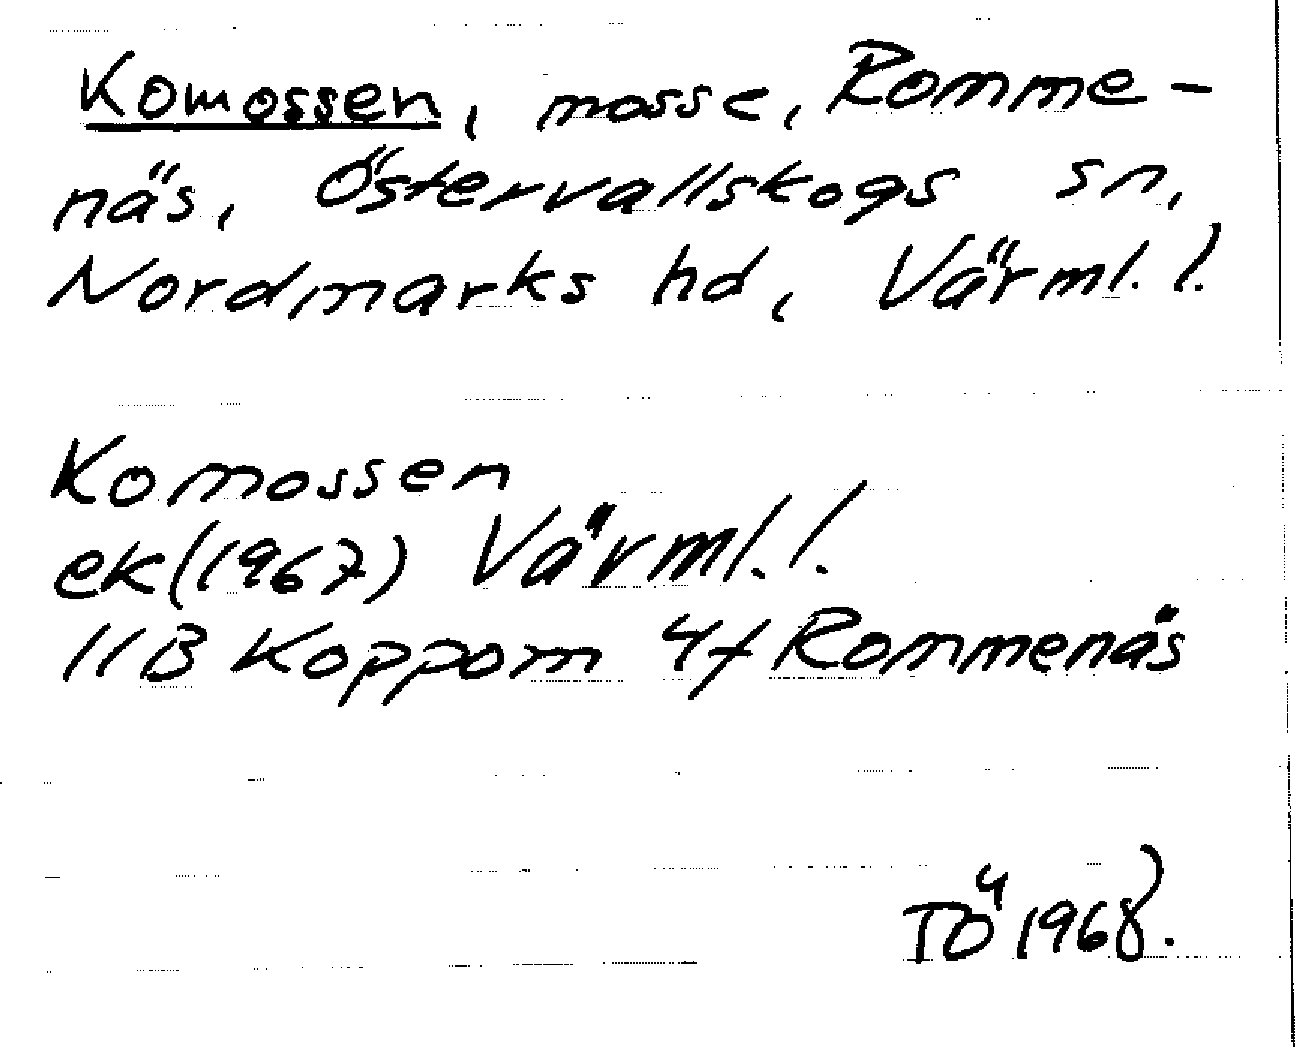 Komossen, mosse, Romme-
näs, Östervallskogs sn,
Nordmarks hd, Värml. l.
Komossen
ek (1967) Värml. l.
11B Koppom 4f Rommenäs
TÖ 1968.